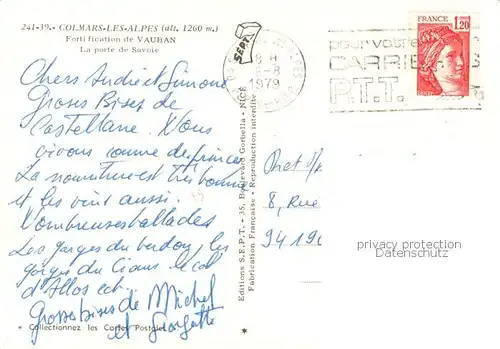 241-39.- COLMARS-LES-ALPES (alt. 1260 m.)
Fortification de VAUBAN
La porte de Savoie
Chers André et Simone
Grosses Bises de
Castellane. Nous
vivons comme des princes
La nourriture est très bonne
et les vins aussi.
Nombreuses ballades
Les gorges du verdon, les
gorges du Cians. le col
d'Allos ect..
Grosses bises de Michel
et Georgette
* Collectionnez les Cartes Postales
Editions S.E.P.T. - 35, Boulevard Gorbella - NICE
Fabrication Française - Reproduction interdite
SEPT
8 H
-8
1979
pour votre
CARRIE
P.T.T.
FRANCE
1,20
8, Rue
94190
privacy protection
Datenschutz
*